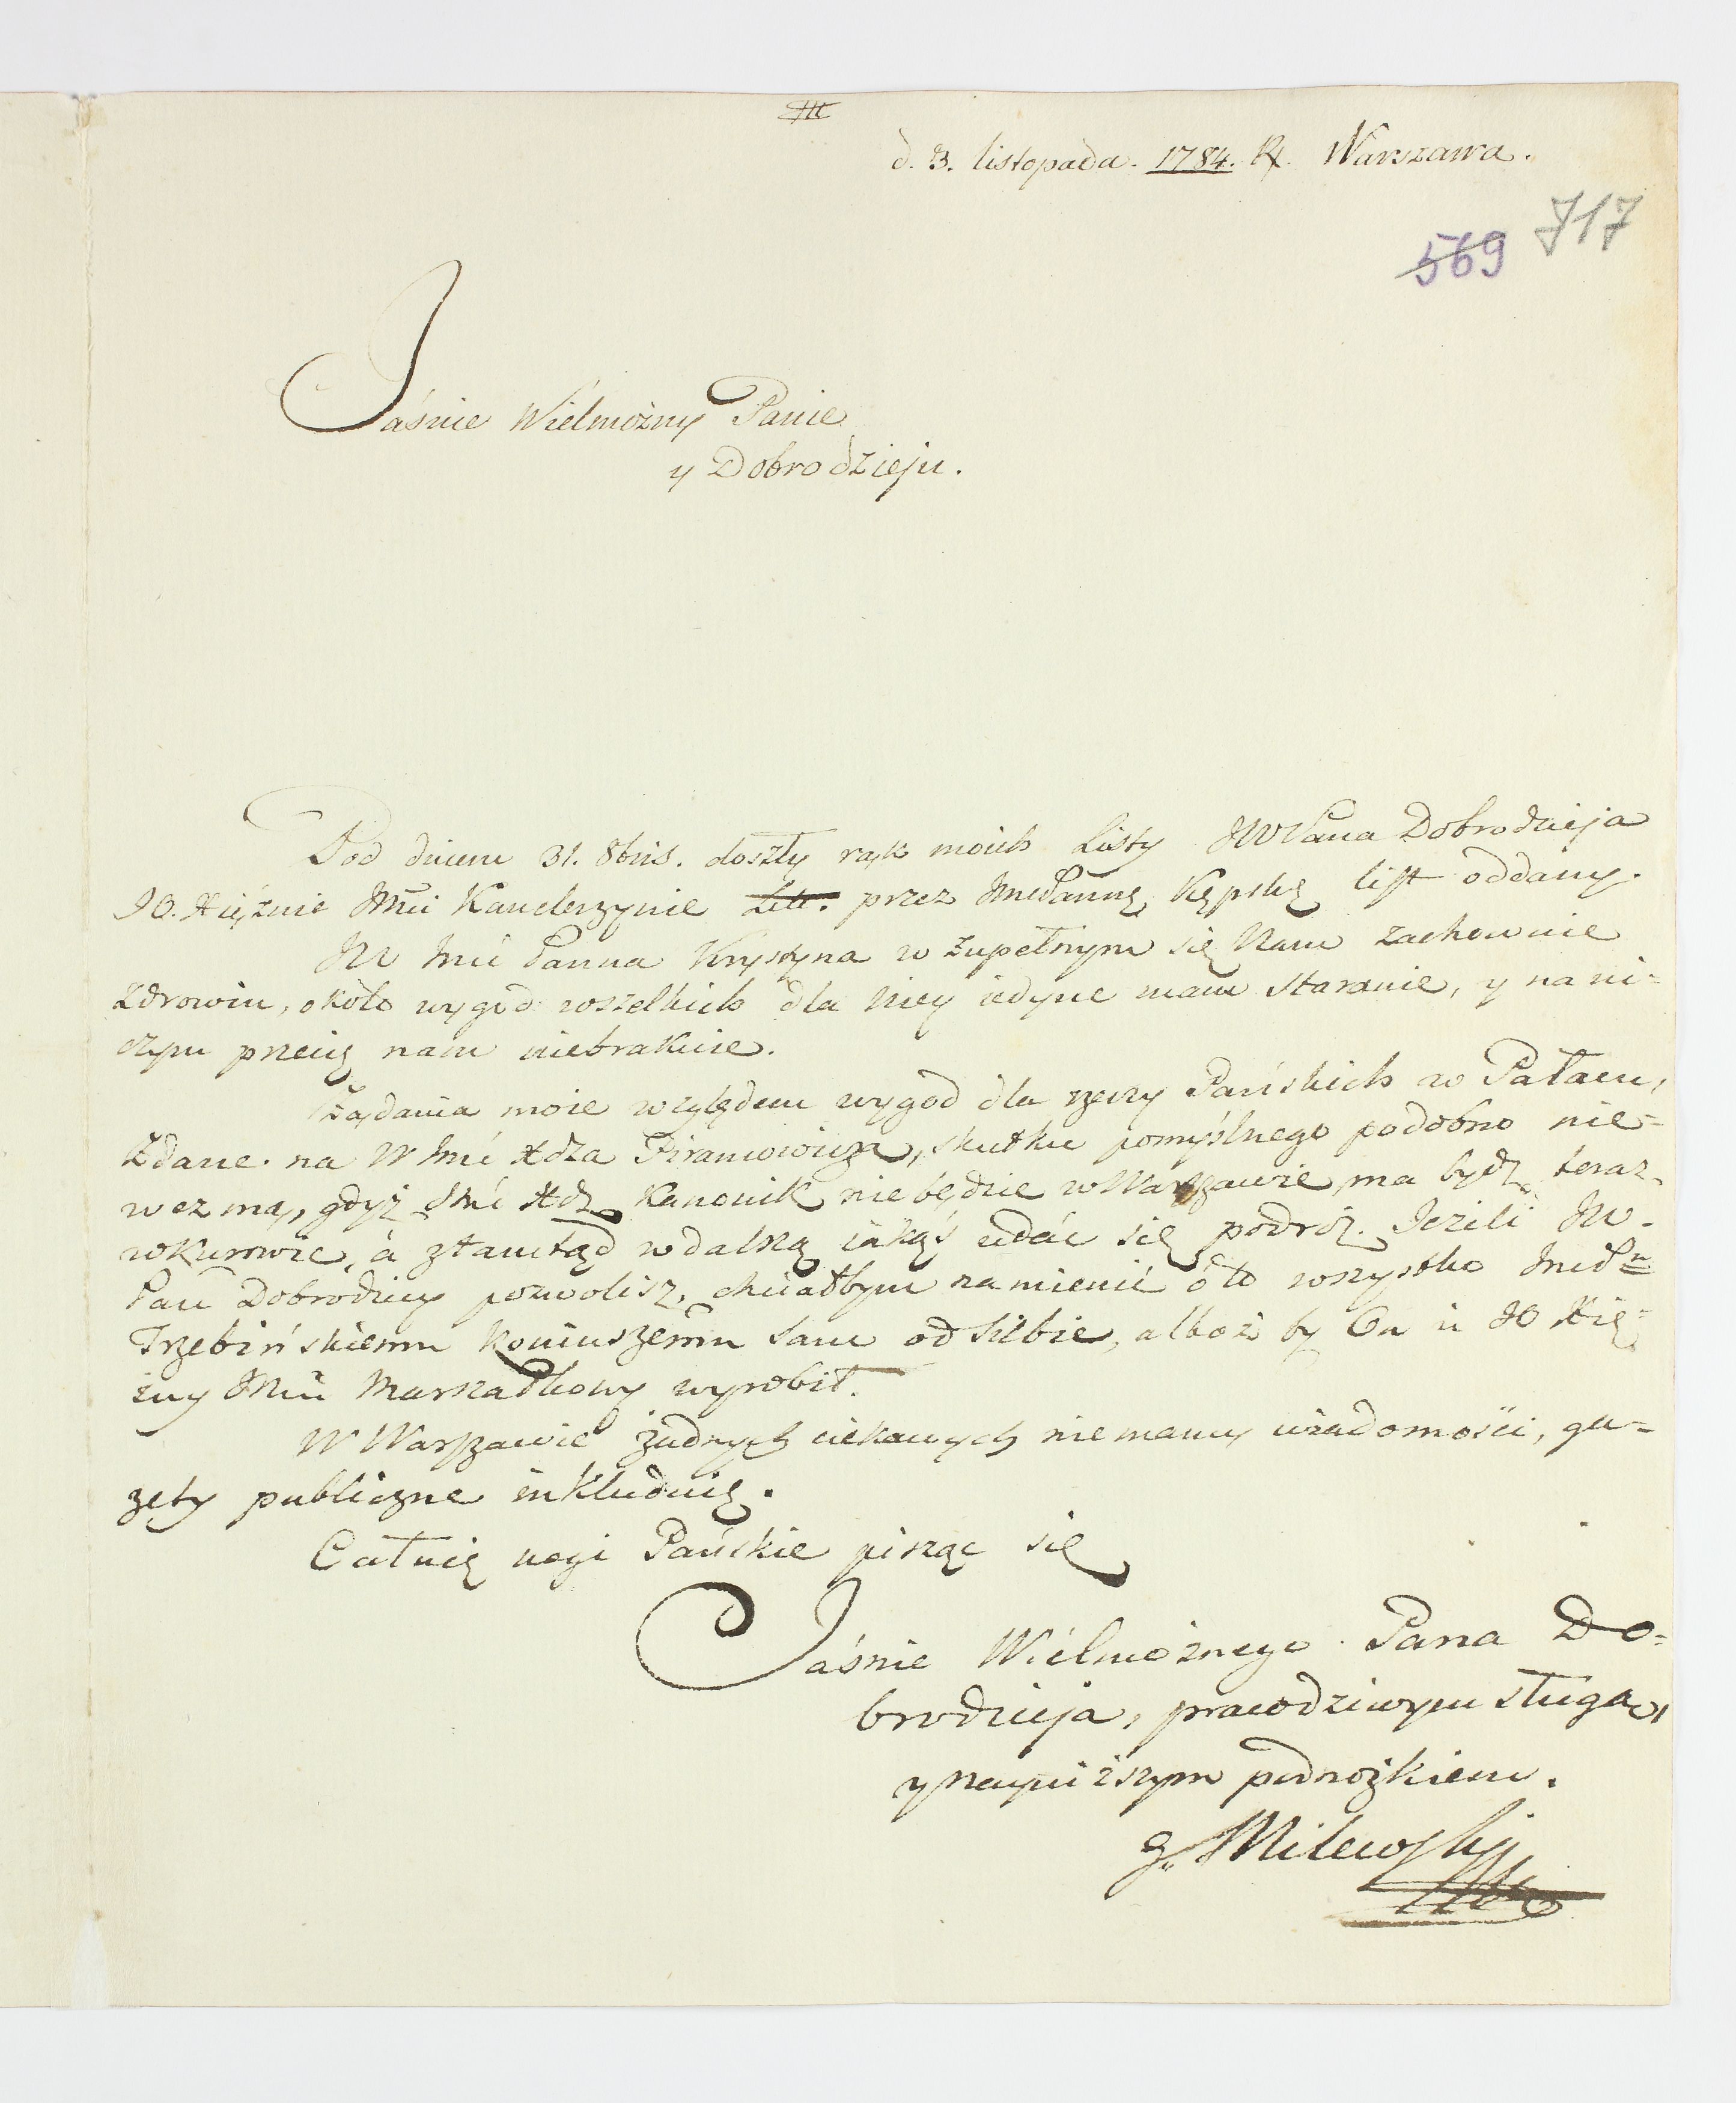 d. 3. listopada. 1784. R. Warszawa.
717
569
Jaśnie Wielmożny Panie
y Dobrodzieju.
Pod dniem 31. 8bris. doszły rąk moich Listy JWPana Dobrodzieja
JO. Xiężnie Jmci Kanclerzynie Litt. przez JmćPannę Kępską list oddany.
JW Jmć Panna Krystyna w zupełnym się Nam zachowuie
zdrowiu, około wygod wszelkich dla niey iedyne mam staranie, y na ni=
czym przecię nam niebrakuie.
Żądania moie względem wygod dla rzeczy Pańskich w Pałacu,
zdane na W Jmć Xdza Piramowicza, skutku pomyślnego podobno nie=
wezmą, gdyż Jmć Xdz Kanonik niebędzie w Warszawie, ma bydz teraz
w Kurowie, à ztamtąd w dalszą iakąś udać się podróż. Jeżeli JW.
Pan Dobrodziey pozwolisz, chciałbym namienić ó to wszystko JmćPu
Trzebińskiemu Koniuszemu sam od siebie, alboż by On u JO Xię=
żny Jmci Marszałkowy wyrobił.
W Warszawie żadnych ciekawych niemamy wiadomości, ga=
zety publiczne inkluduię.
Całuię nogi Pańskie pisząc się
Jaśnie Wielmożnego Pana Do=
brodzieja, prawdziwym sługą,
y nayniższym podnożkiem.
Milewski